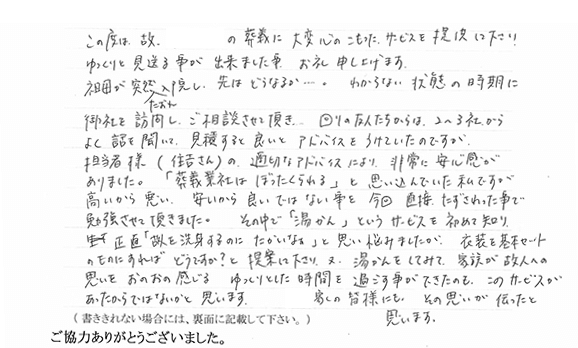 この度は、故 の葬義に大変心のこもったサービスを提供下さり
ゆっくりと見送る事が出来ました事、お礼申し上げます。
祖母が突然入院し、先はどうなるか…。わからない状態の時期に
たおれ
御社を訪問し、ご相談させて頂き、回りの友人たちからは、2〜3社から
よく話を聞いて、見積すると良いとアドバイスをうけていたのですが、
担当者様(住吉さん)の、適切なアドバイスにより、非常に安心感が
ありました。「葬義業社はぼったくられる」と思い込んでいた私ですが
高いから悪い、安いから良いではない事を今回直接たずさわった事で
勉強させて頂きました。その中で「湯かん」というサービスを初めて知り、
正直「故人を洗身するのにたかいなぁ」と思い悩みましたが、衣装を基本セット
のものにすればどうですか?と提案に下さり、又、湯かんをしてみて、家族が故人への
思いをおのおの感じる ゆっくりとした時間を過ごす事ができたのも、このサービスが
あったからではないかと思います。 の皆様にも、その思いが伝ったと
思います。
(書ききれない場合には、裏面に記載して下さい。)
ご協力ありがとうございました。